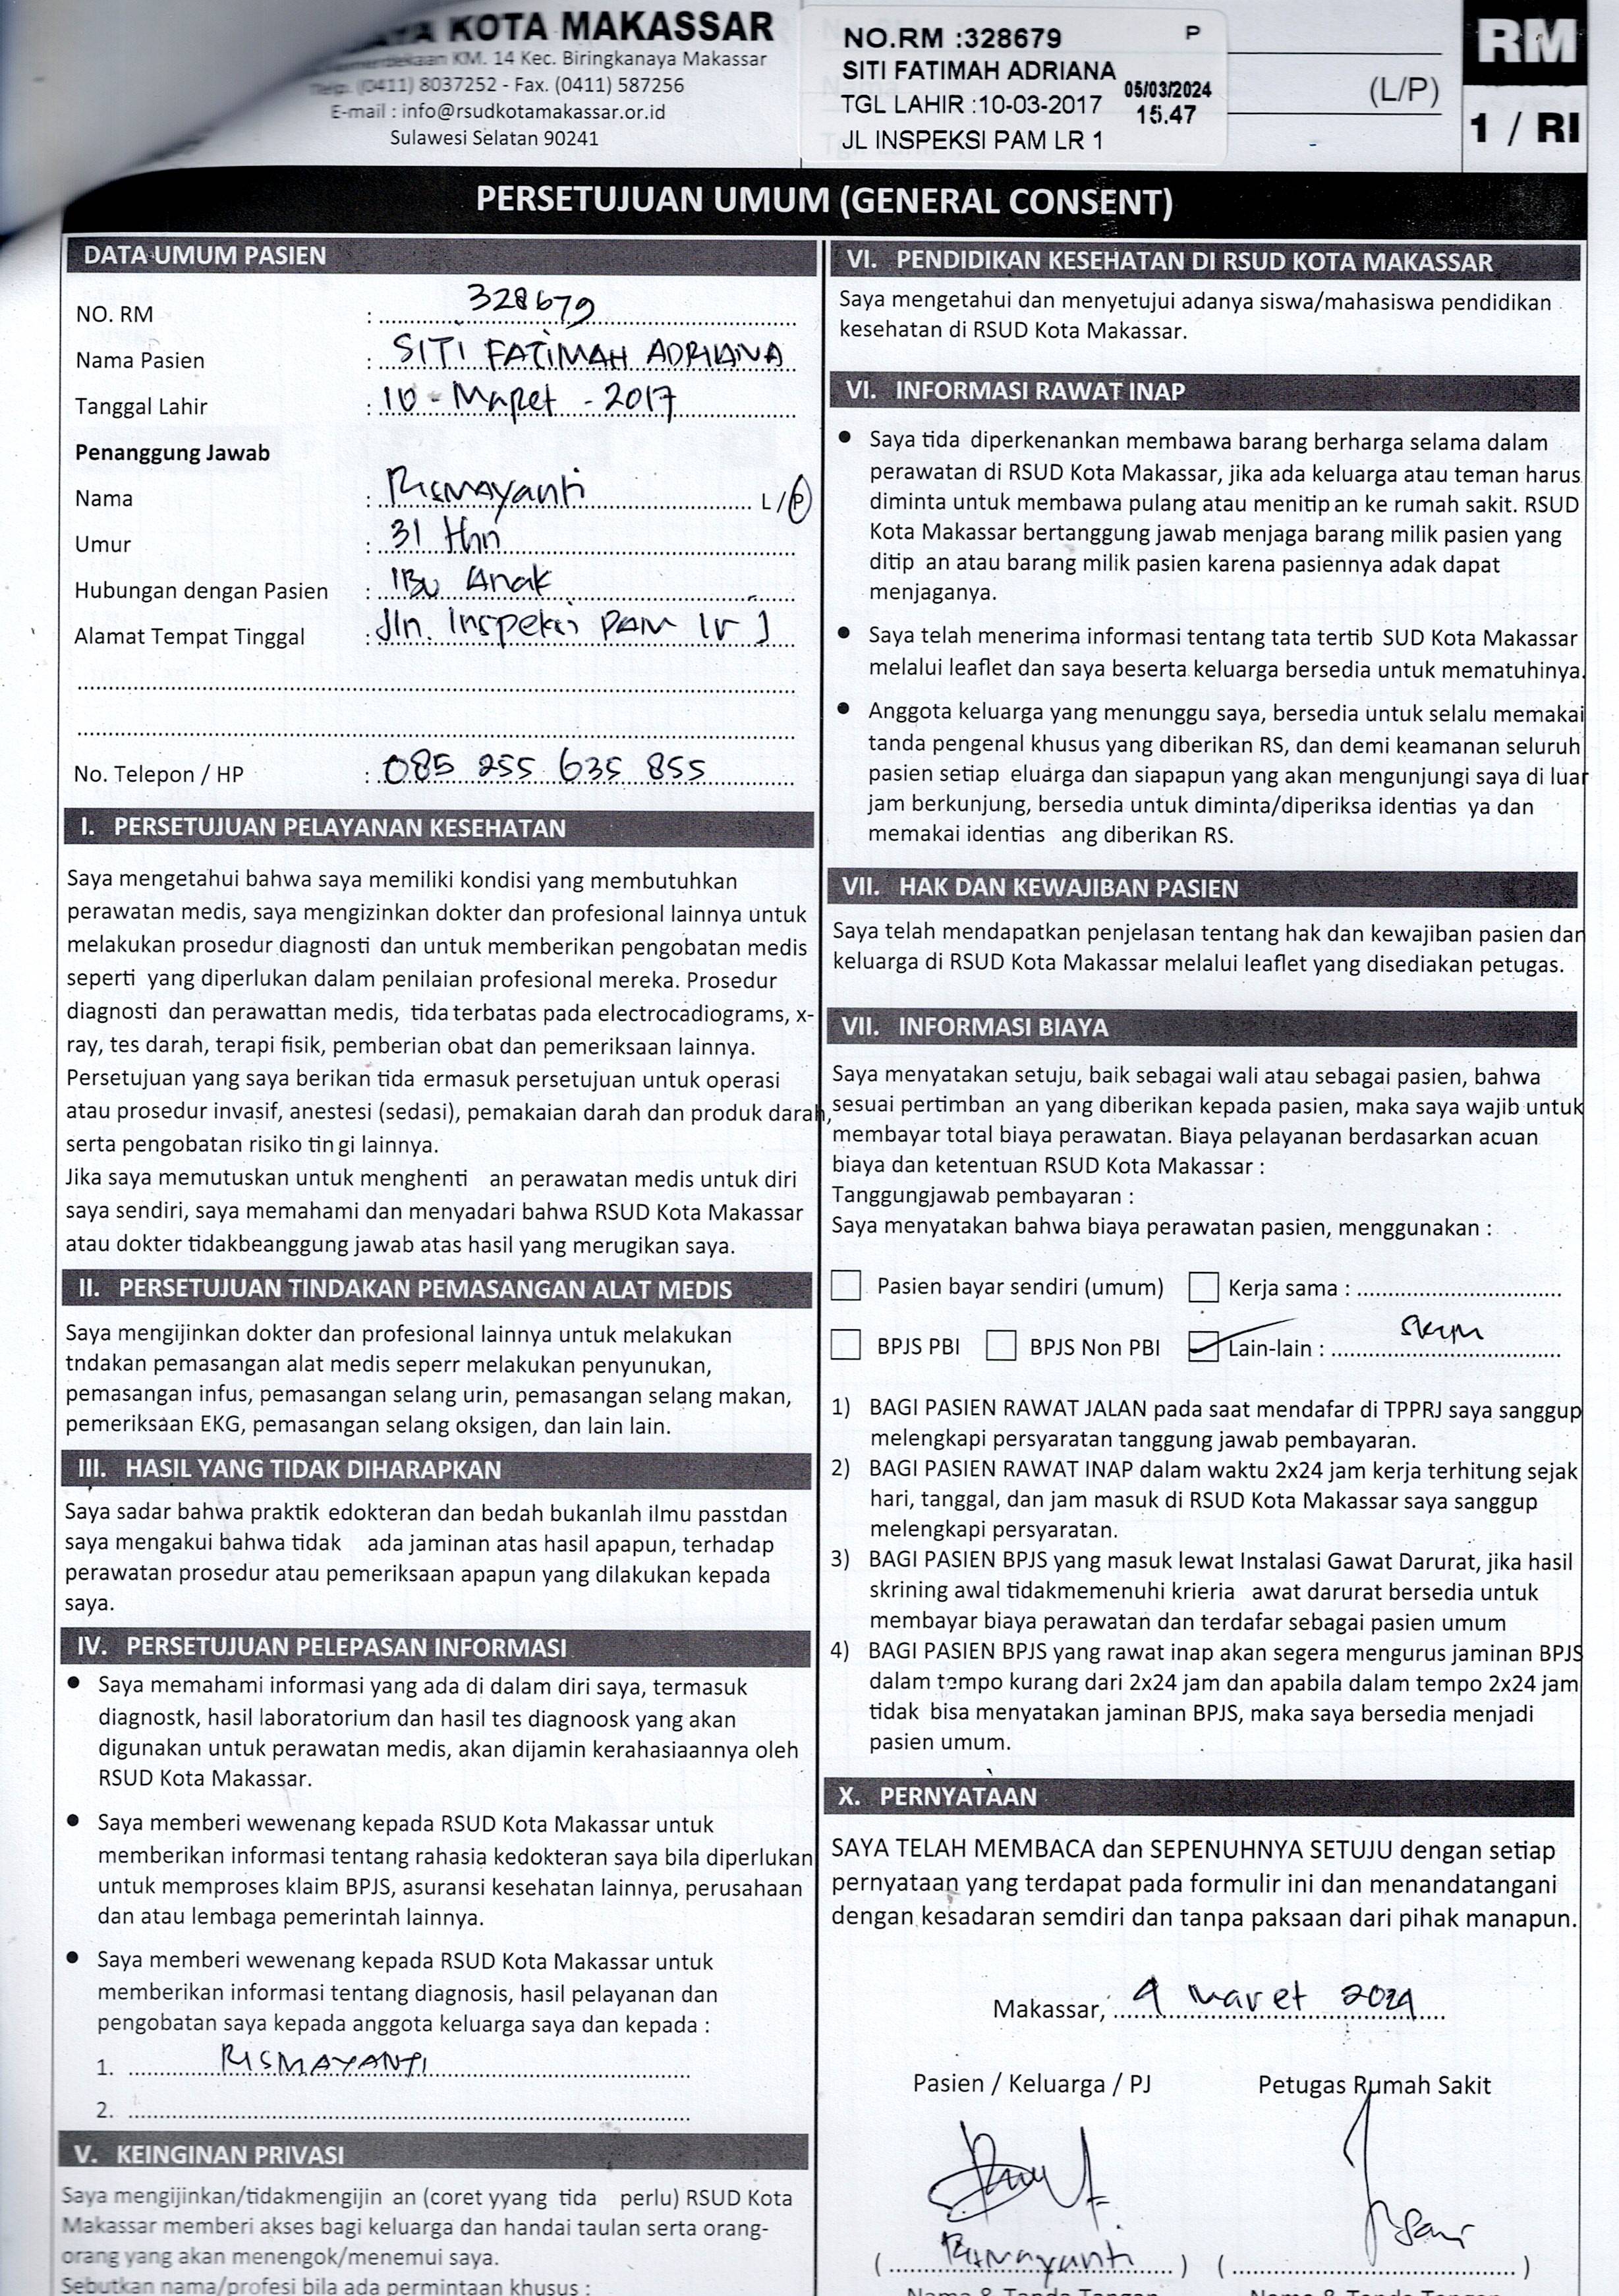 KOTA MAKASSAR
KM. 14 Kec. Biringkanaya Makassar
Telp. (0411) 8037252 - Fax. (0411) 587256
E-mail : info@rsudkotamakassar.or.id
Sulawesi Selatan 90241
NO.RM :328679 P
SITI FATIMAH ADRIANA
TGL LAHIR :10-03-2017
05/03/2024
15.47
JL INSPEKSI PAM LR 1
(L/P)
RM
1 / RI
PERSETUJUAN UMUM (GENERAL CONSENT)
DATA UMUM PASIEN
NO. RM : 328679
Nama Pasien : SITI FATIMAH ADRIANA
Tanggal Lahir : 10 - Maret - 2017
Penanggung Jawab
Nama : Rismayanti L / P
Umur : 31 thn
Hubungan dengan Pasien : IBu Anak
Alamat Tempat Tinggal : Jln. Inspeksi PAM lr 1
No. Telepon / HP : 085 255 635 855
I. PERSETUJUAN PELAYANAN KESEHATAN
Saya mengetahui bahwa saya memiliki kondisi yang membutuhkan
perawatan medis, saya mengizinkan dokter dan profesional lainnya untuk
melakukan prosedur diagnosti dan untuk memberikan pengobatan medis
seperti yang diperlukan dalam penilaian profesional mereka. Prosedur
diagnosti dan perawattan medis, tida terbatas pada electrocadiograms, x-
ray, tes darah, terapi fisik, pemberian obat dan pemeriksaan lainnya.
Persetujuan yang saya berikan tida ermasuk persetujuan untuk operasi
atau prosedur invasif, anestesi (sedasi), pemakaian darah dan produk darah,
serta pengobatan risiko tin gi lainnya.
Jika saya memutuskan untuk menghenti an perawatan medis untuk diri
saya sendiri, saya memahami dan menyadari bahwa RSUD Kota Makassar
atau dokter tidakbeanggung jawab atas hasil yang merugikan saya.
II. PERSETUJUAN TINDAKAN PEMASANGAN ALAT MEDIS
Saya mengijinkan dokter dan profesional lainnya untuk melakukan
tndakan pemasangan alat medis seperr melakukan penyunukan,
pemasangan infus, pemasangan selang urin, pemasangan selang makan,
pemeriksaan EKG, pemasangan selang oksigen, dan lain lain.
III. HASIL YANG TIDAK DIHARAPKAN
Saya sadar bahwa praktik edokteran dan bedah bukanlah ilmu passtdan
saya mengakui bahwa tidak ada jaminan atas hasil apapun, terhadap
perawatan prosedur atau pemeriksaan apapun yang dilakukan kepada
saya.
IV. PERSETUJUAN PELEPASAN INFORMASI
• Saya memahami informasi yang ada di dalam diri saya, termasuk
diagnostk, hasil laboratorium dan hasil tes diagnoosk yang akan
digunakan untuk perawatan medis, akan dijamin kerahasiaannya oleh
RSUD Kota Makassar.
• Saya memberi wewenang kepada RSUD Kota Makassar untuk
memberikan informasi tentang rahasia kedokteran saya bila diperlukan
untuk memproses klaim BPJS, asuransi kesehatan lainnya, perusahaan
dan atau lembaga pemerintah lainnya.
• Saya memberi wewenang kepada RSUD Kota Makassar untuk
memberikan informasi tentang diagnosis, hasil pelayanan dan
pengobatan saya kepada anggota keluarga saya dan kepada :
1. RISMAYANTI
2.
V. KEINGINAN PRIVASI
Saya mengijinkan/tidakmengijin an (coret yyang tida perlu) RSUD Kota
Makassar memberi akses bagi keluarga dan handai taulan serta orang-
orang yang akan menengok/menemui saya.
Sebutkan nama/profesi bila ada permintaan khusus :
VI. PENDIDIKAN KESEHATAN DI RSUD KOTA MAKASSAR
Saya mengetahui dan menyetujui adanya siswa/mahasiswa pendidikan
kesehatan di RSUD Kota Makassar.
VI. INFORMASI RAWAT INAP
• Saya tida diperkenankan membawa barang berharga selama dalam
perawatan di RSUD Kota Makassar, jika ada keluarga atau teman harus
diminta untuk membawa pulang atau menitip an ke rumah sakit. RSUD
Kota Makassar bertanggung jawab menjaga barang milik pasien yang
ditip an atau barang milik pasien karena pasiennya adak dapat
menjaganya.
• Saya telah menerima informasi tentang tata tertib SUD Kota Makassar
melalui leaflet dan saya beserta keluarga bersedia untuk mematuhinya.
• Anggota keluarga yang menunggu saya, bersedia untuk selalu memakai
tanda pengenal khusus yang diberikan RS, dan demi keamanan seluruh
pasien setiap eluarga dan siapapun yang akan mengunjungi saya di luar
jam berkunjung, bersedia untuk diminta/diperiksa identias ya dan
memakai identias ang diberikan RS.
VII. HAK DAN KEWAJIBAN PASIEN
Saya telah mendapatkan penjelasan tentang hak dan kewajiban pasien dan
keluarga di RSUD Kota Makassar melalui leaflet yang disediakan petugas.
VII. INFORMASI BIAYA
Saya menyatakan setuju, baik sebagai wali atau sebagai pasien, bahwa
sesuai pertimban an yang diberikan kepada pasien, maka saya wajib untuk
membayar total biaya perawatan. Biaya pelayanan berdasarkan acuan
biaya dan ketentuan RSUD Kota Makassar :
Tanggungjawab pembayaran :
Saya menyatakan bahwa biaya perawatan pasien, menggunakan :
Pasien bayar sendiri (umum) Kerja sama :
BPJS PBI BPJS Non PBI Lain-lain :
1) BAGI PASIEN RAWAT JALAN pada saat mendafar di TPPRJ saya sanggup
melengkapi persyaratan tanggung jawab pembayaran.
2) BAGI PASIEN RAWAT INAP dalam waktu 2x24 jam kerja terhitung sejak
hari, tanggal, dan jam masuk di RSUD Kota Makassar saya sanggup
melengkapi persyaratan.
3) BAGI PASIEN BPJS yang masuk lewat Instalasi Gawat Darurat, jika hasil
skrining awal tidakmemenuhi krieria awat darurat bersedia untuk
membayar biaya perawatan dan terdafar sebagai pasien umum
4) BAGI PASIEN BPJS yang rawat inap akan segera mengurus jaminan BPJS
dalam tempo kurang dari 2x24 jam dan apabila dalam tempo 2x24 jam
tidak bisa menyatakan jaminan BPJS, maka saya bersedia menjadi
pasien umum.
X. PERNYATAAN
SAYA TELAH MEMBACA dan SEPENUHNYA SETUJU dengan setiap
pernyataan yang terdapat pada formulir ini dan menandatangani
dengan kesadaran semdiri dan tanpa paksaan dari pihak manapun.
Makassar, 4 maret 2024
Pasien / Keluarga / PJ Petugas Rumah Sakit
( Rismayanti ) ( )